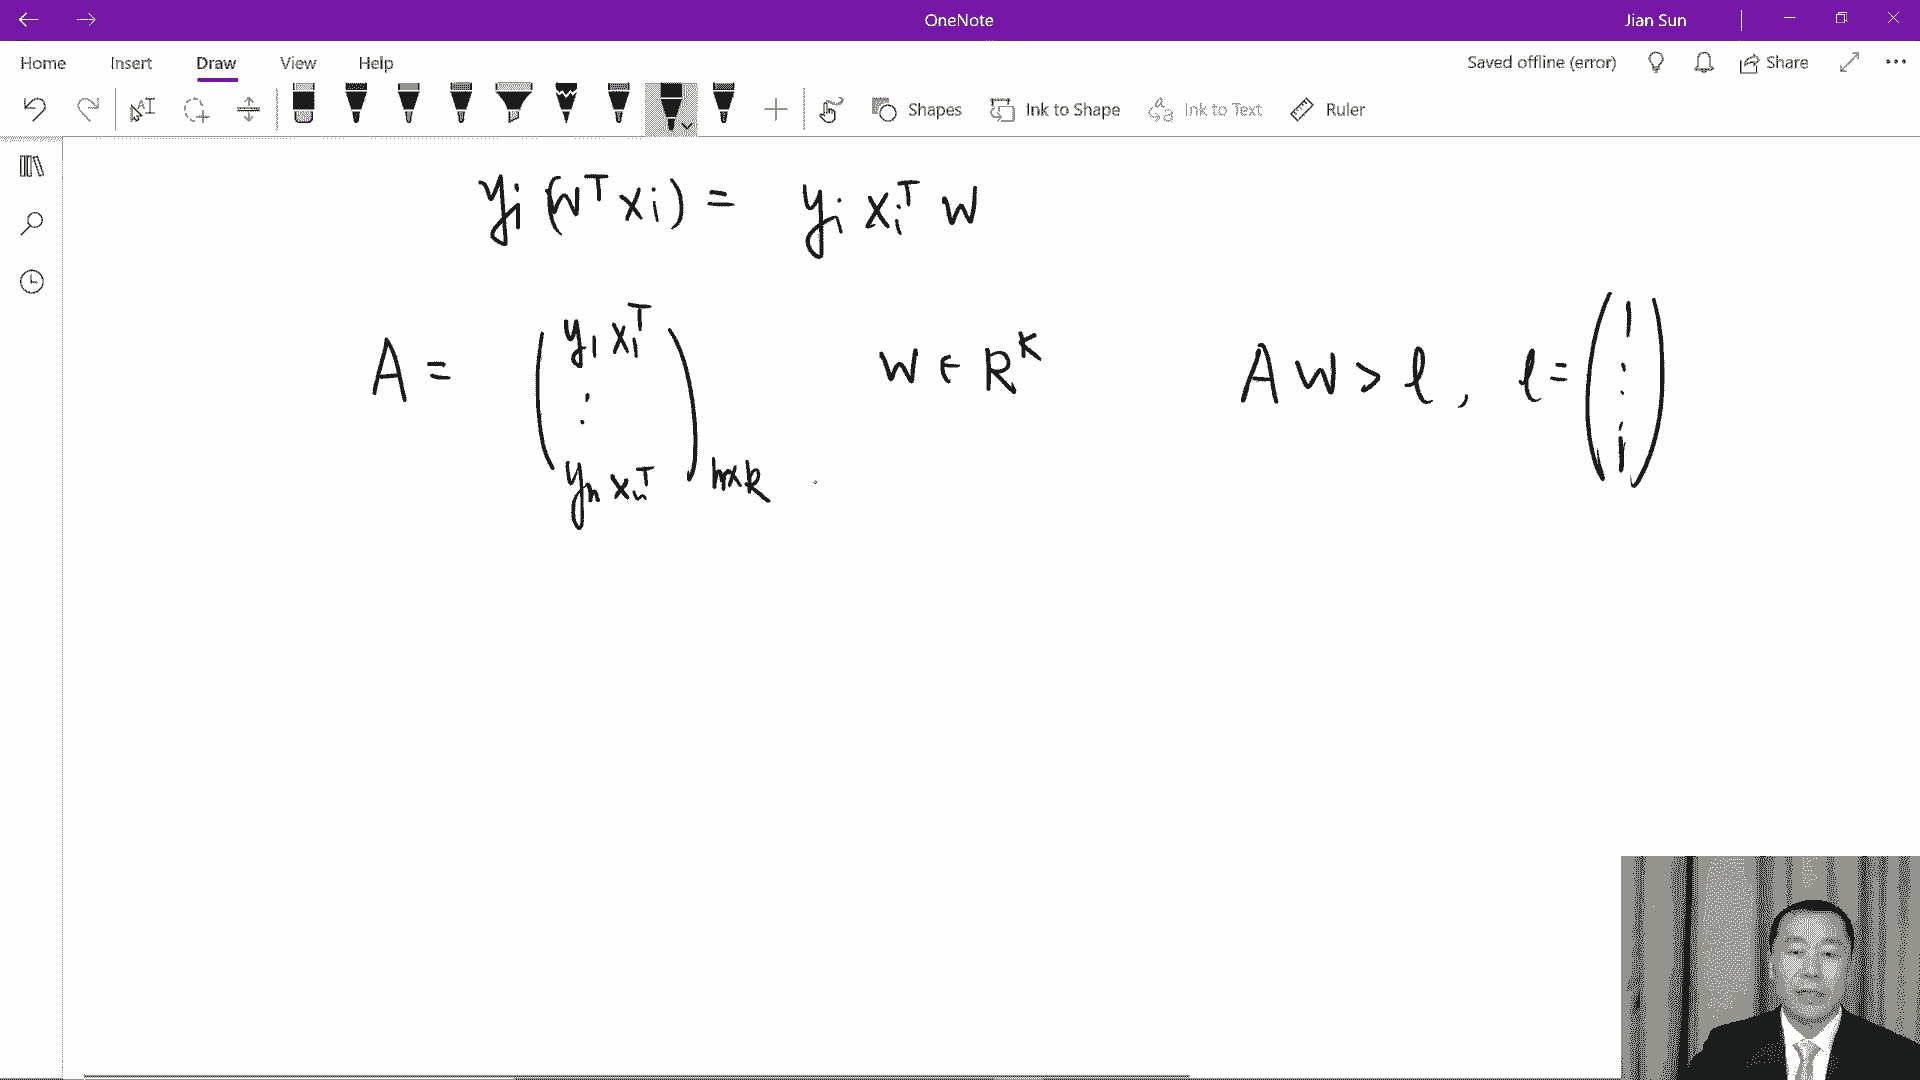 OneNote
Jian Sun
Home Insert Draw View Help
Saved offline (error) Share
Shapes Ink to Shape Ink to Text Ruler
yᵢ (wᵀ xᵢ) = yᵢ xᵢᵀ w
A = ( y₁ x₁ᵀ ⋮ yₙ xₙᵀ ) n×k w ∈ Rᴷ A w > l, l = ( 1 ⋮ 1 )